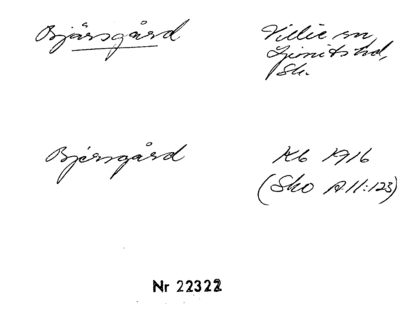 Bjärsgård
Villie sn,
Ljunits hd,
Sk.
Bjersgård
Kb 1916
(Sko A11:123)
Nr 22322